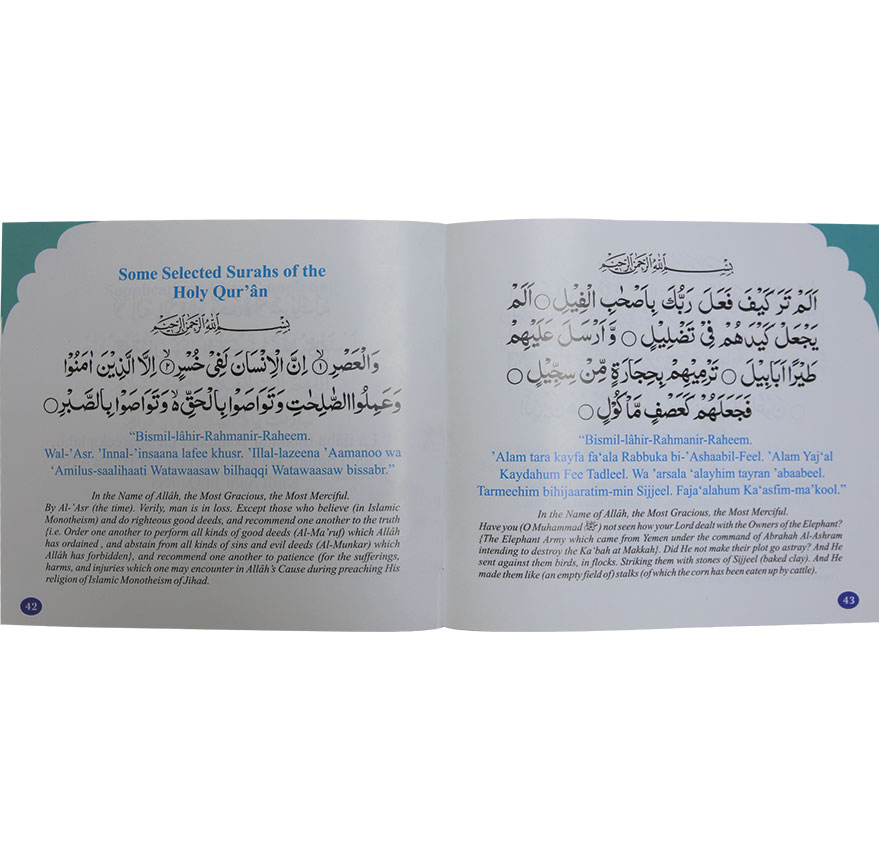 Some Selected Surahs of the
Holy Qur’ân
بِسْمِ اللهِ الرَّحْمٰنِ الرَّحِيْمِ
وَالْعَصْرِ ۙ﴿۱﴾ اِنَّ الْاِنْسَانَ لَفِیْ خُسْرٍ ۙ﴿۲﴾ اِلَّا الَّذِیْنَ اٰمَنُوْا
وَعَمِلُوا الصّٰلِحٰتِ وَتَوَاصَوْا بِالْحَقِّ ۙ وَتَوَاصَوْا بِالصَّبْرِ ○
“Bismil-lâhir-Rahmanir-Raheem.
Wal-’Asr. ’Innal-’insaana lafee khusr. ’Illal-lazeena ’Aamanoo wa
‘Amilus-saalihaati Watawaasaw bilhaqqi Watawaasaw bissabr.”
In the Name of Allâh, the Most Gracious, the Most Merciful.
By Al-’Asr (the time). Verily, man is in loss. Except those who believe (in Islamic
Monotheism) and do righteous good deeds, and recommend one another to the truth
{i.e. Order one another to perform all kinds of good deeds (Al-Ma’ruf) which Allâh
has ordained , and abstain from all kinds of sins and evil deeds (Al-Munkar) which
Allâh has forbidden}, and recommend one another to patience (for the sufferings,
harms, and injuries which one may encounter in Allâh’s Cause during preaching His
religion of Islamic Monotheism of Jihad.
42
بِسْمِ اللهِ الرَّحْمٰنِ الرَّحِيْمِ
اَلَمْ تَرَ كَيْفَ فَعَلَ رَبُّكَ بِاَصْحٰبِ الْفِيْلِ ○ اَلَمْ
يَجْعَلْ كَيْدَهُمْ فِیْ تَضْلِيْلٍ ○ وَّاَرْسَلَ عَلَيْهِمْ
طَيْرًا اَبَابِيْلَ ○ تَرْمِيْهِمْ بِحِجَارَةٍ مِّنْ سِجِّيْلٍ ○
فَجَعَلَهُمْ كَعَصْفٍ مَّاْكُوْلٍ ○
“Bismil-lâhir-Rahmanir-Raheem.
’Alam tara kayfa fa‘ala Rabbuka bi-’Ashaabil-Feel. ’Alam Yaj‘al
Kaydahum Fee Tadleel. Wa ’arsala ‘alayhim tayran ’abaabeel.
Tarmeehim bihijaaratim-min Sijjeel. Faja‘alahum Ka‘asfim-ma’kool.”
In the Name of Allâh, the Most Gracious, the Most Merciful.
Have you (O Muhammad ﷺ) not seen how your Lord dealt with the Owners of the Elephant?
{The Elephant Army which came from Yemen under the command of Abrahah Al-Ashram
intending to destroy the Ka‘bah at Makkah}. Did He not make their plot go astray? And He
sent against them birds, in flocks. Striking them with stones of Sijjeel (baked clay). And He
made them like (an empty field of) stalks (of which the corn has been eaten up by cattle).
43